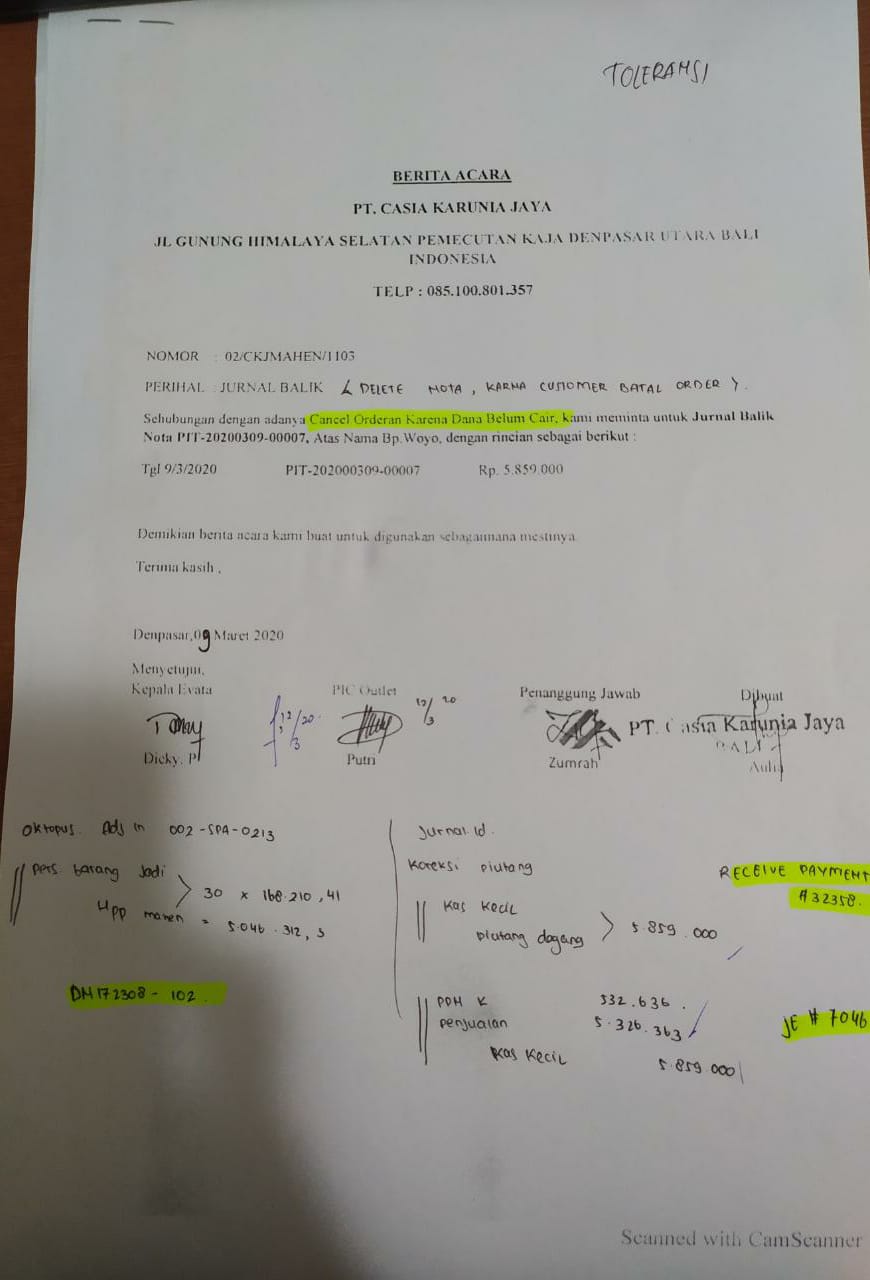 TOLERANSI
BERITA ACARA
PT. CASIA KARUNIA JAYA
JL GUNUNG HIMALAYA SELATAN PEMECUTAN KAJA DENPASAR UTARA BALI
INDONESIA
TELP : 085.100.801.357
NOMOR : 02/CKJMAHEN/1103
PERIHAL : JURNAL BALIK ( DELETE NOTA , KARNA CUSTOMER BATAL ORDER ) .
Sehubungan dengan adanya Cancel Orderan Karena Dana Belum Cair, kami meminta untuk Jurnal Balik
Nota PIT-20200309-00007, Atas Nama Bp.Woyo, dengan rincian sebagai berikut :
Tgl 9/3/2020 PIT-202000309-00007 Rp. 5.859.000
Demikian berita acara kami buat untuk digunakan sebagaimana mestinya.
Terima kasih ,
Denpasar,09 Maret 2020
Menyetujui,
Kepala Evata PIC Outlet Penanggung Jawab Dibuat
12/3 20. 12/3 20
PT. Casia Karunia Jaya
BALI
Dicky. P Putri Zumrah Aulia
Oktopus. Adj in 002-SPA-0213
Pers. barang Jadi
Hpp mahen = 30 x 168.210,41
5.046.312,3
DM172308-102.
Jurnal.id.
Koreksi piutang
Kas Kecil
piutang dagang 5.859.000
RECEIVE PAYMENT
#32358.
PPN K 532.636.
penjualan 5.326.363
Kas Kecil 5.859.000
JE # 7046
Scanned with CamScanner